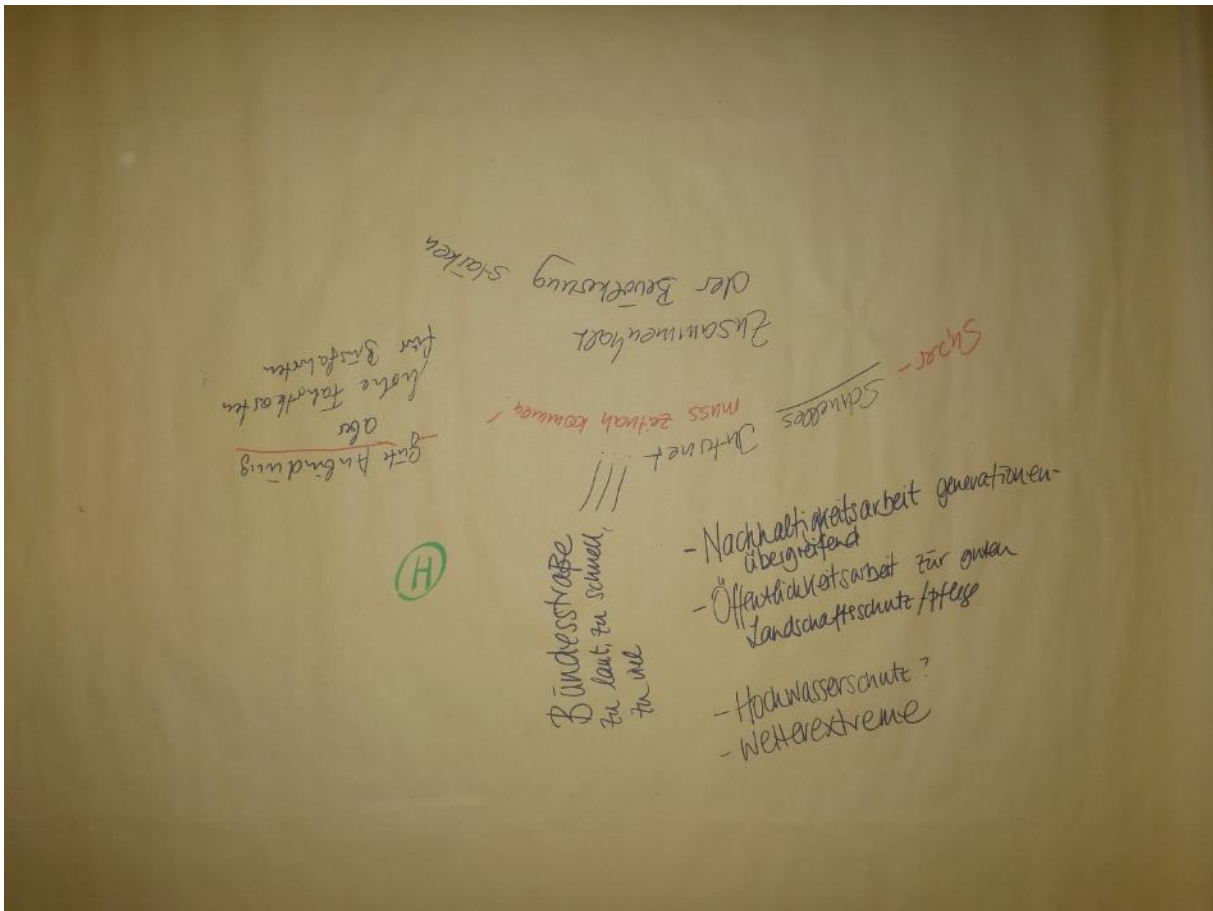 Zusammenhalt
der Bevölkerung stärken
Super-
Schnelles
Internet
muss zeitnah kommen!
gute Anbindung
aber
hohe Fahrtkosten
für Busfahrten
H
Bundesstraße
zu laut, zu schnell,
zu viel
- Nachhaltigkeitsarbeit generationen-
übergreifend
- Öffentlichkeitsarbeit zur guten
Landschaftsschutz/pflege
- Hochwasserschutz?
- Wetterextreme